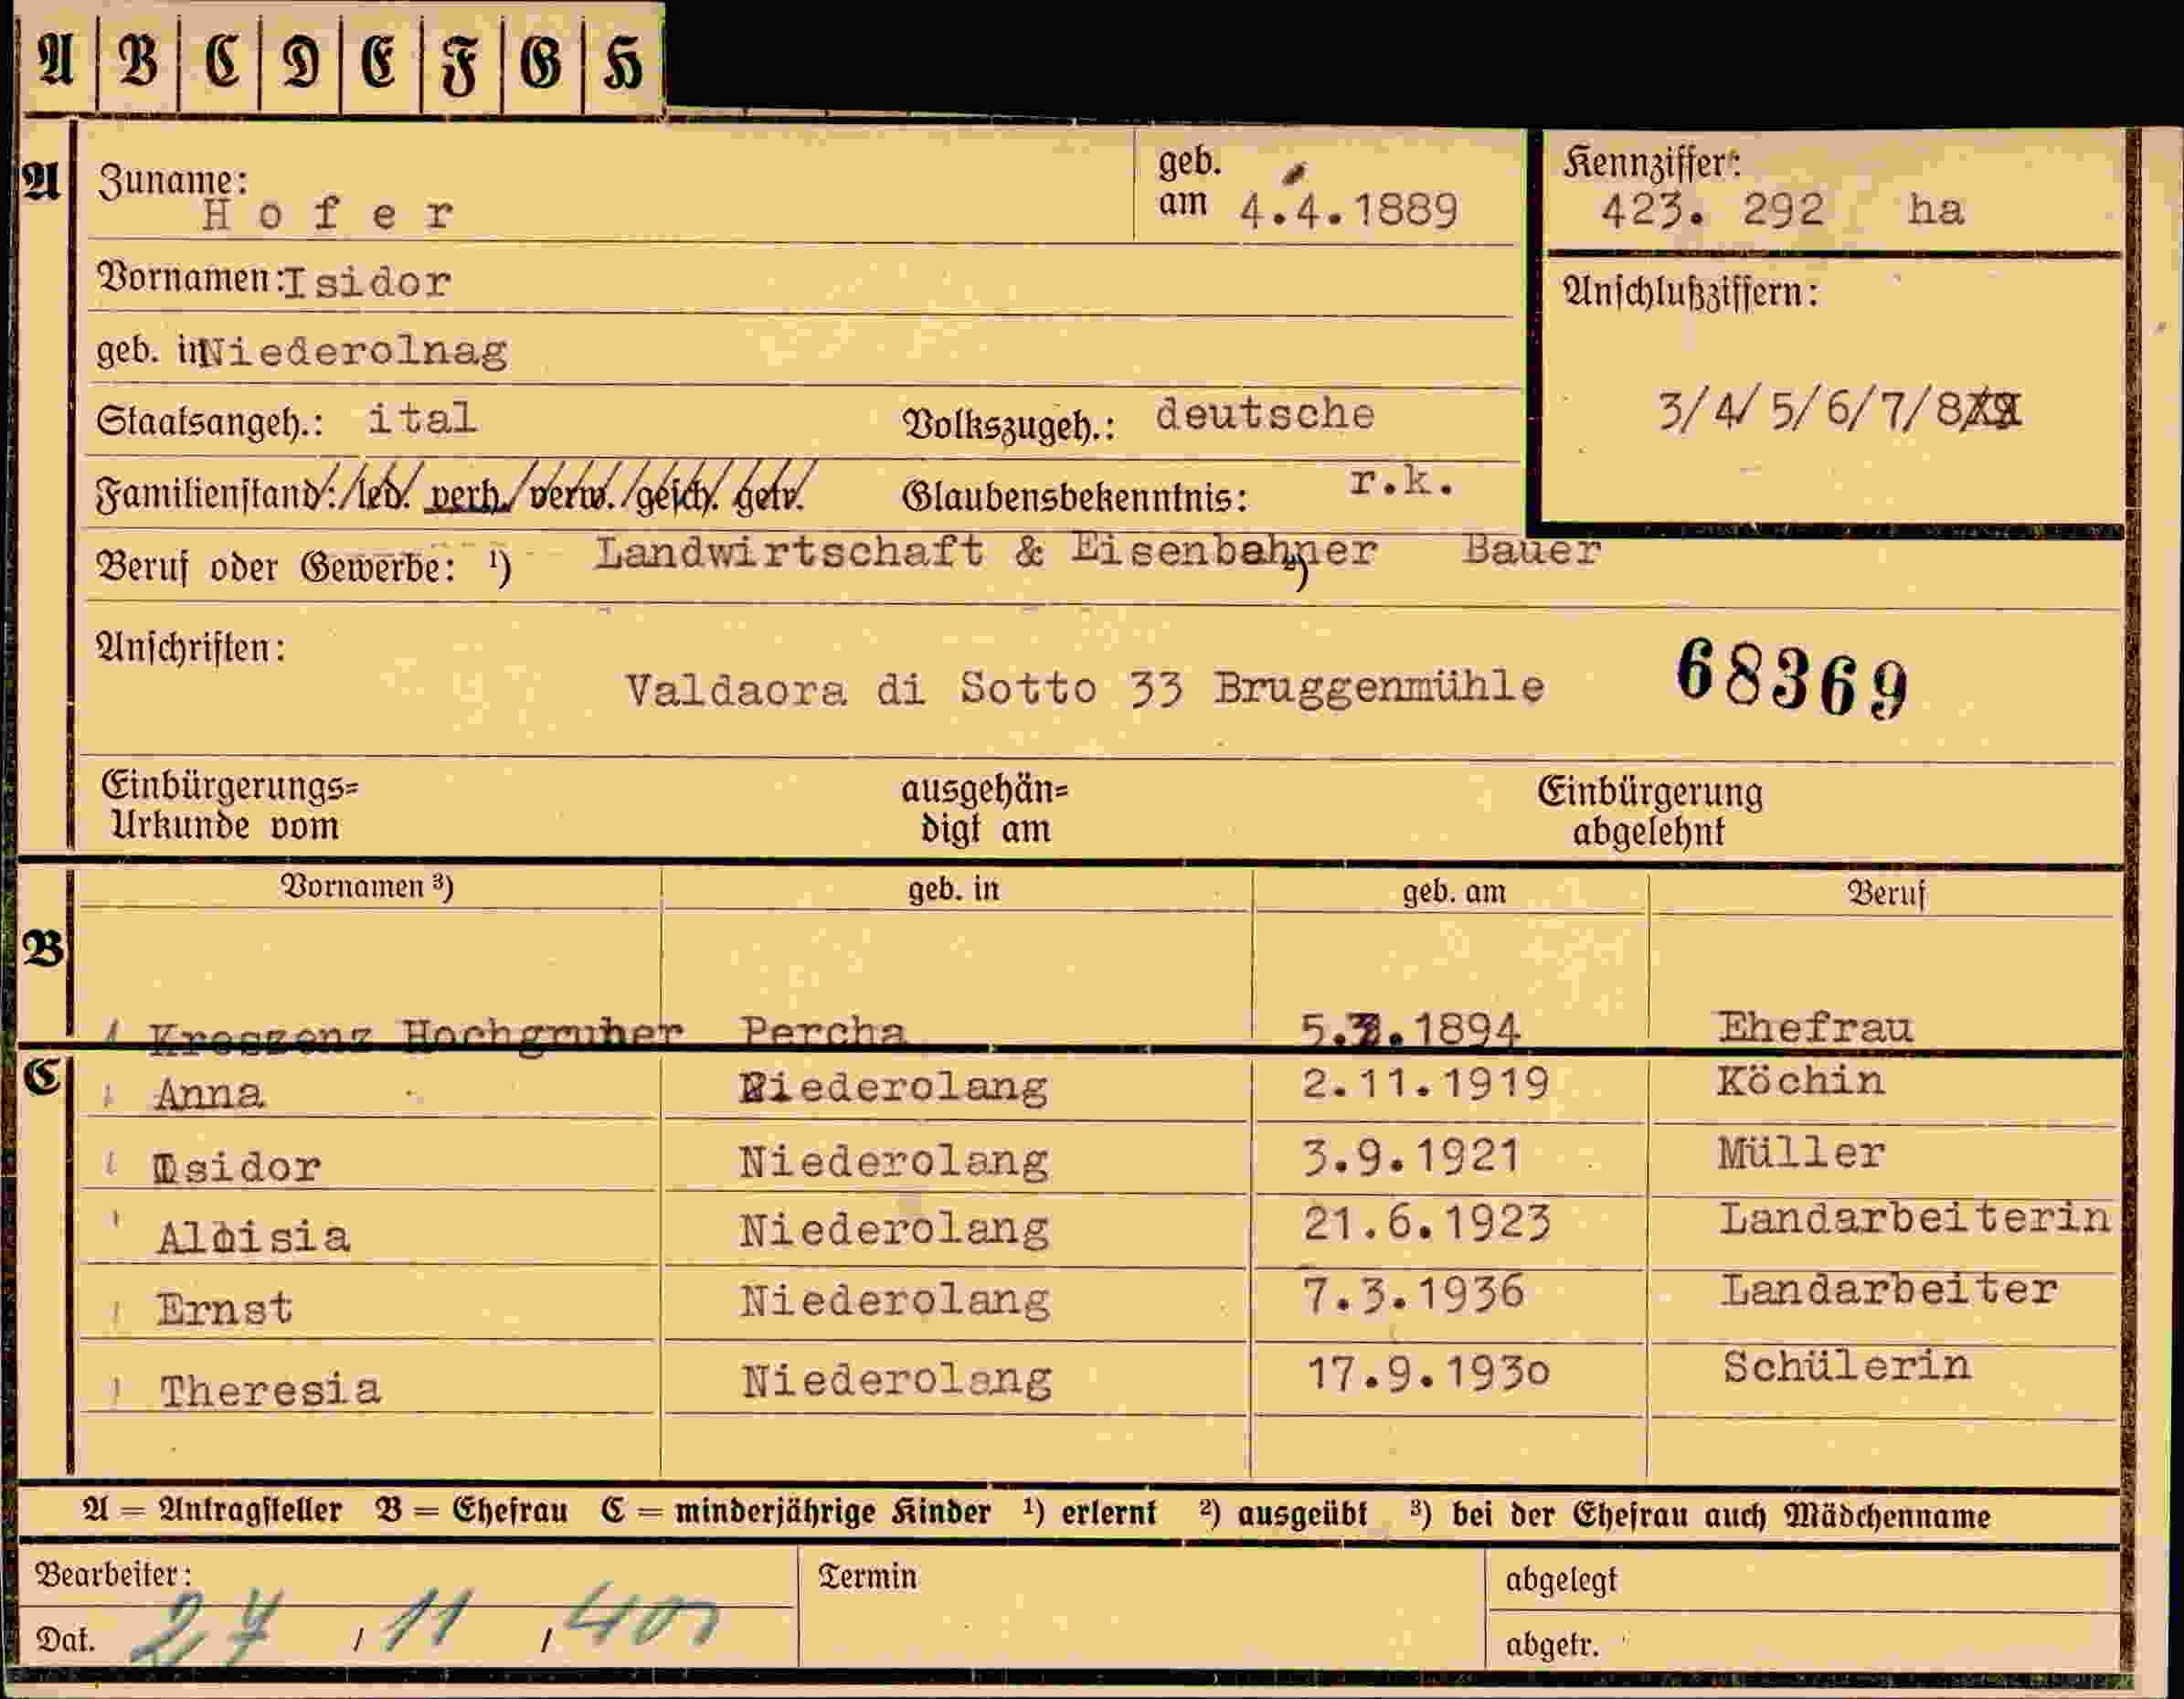 A B C D E F G H
A Zuname: geb. Kennziffer:
Hofer am 4.4.1889 423. 292 ha
Vornamen: Isidor Anschlußziffern:
geb. in Niederolnag
Staatsangeh.: ital Volkszugeh.: deutsche 3/4/5/6/7/8
Familienstand: led. verh. verw. gesch. getr. Glaubensbekenntnis: r.k.
Beruf oder Gewerbe: ¹) Landwirtschaft & Eisenbahner ²) Bauer
Anschriften:
Valdaora di Sotto 33 Bruggenmühle 68369
Einbürgerungs= ausgehän= Einbürgerung
Urkunde vom digt am abgelehnt
Vornamen ³) geb. in geb. am Beruf
B
Kreszenz Hochgruber Percha 5..1894 Ehefrau
C Anna Niederolang 2.11.1919 Köchin
Isidor Niederolang 3.9.1921 Müller
Aloisia Niederolang 21.6.1923 Landarbeiterin
Ernst Niederolang 7.3.1936 Landarbeiter
Theresia Niederolang 17.9.1930 Schülerin
A = Antragsteller B = Ehefrau C = minderjährige Kinder ¹) erlernt ²) ausgeübt ³) bei der Ehefrau auch Mädchenname
Bearbeiter: Termin abgelegt
Dat. 27 / 11 / 40 abgetr.